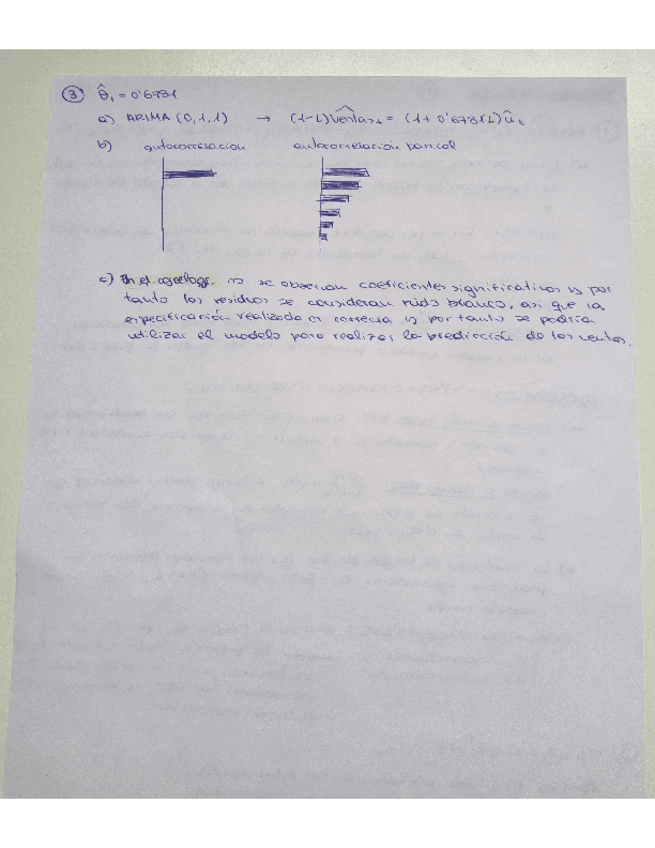 ③ θ̂₁ = 0'6731
a) ARIMA (0,1,1) → (1-L)Ventasₜ = (1+0'6731L)ûₜ
b) autocorrelación autocorrelación parcial
c) En el correlogr. no se observan coeficientes significativos y por
tanto los residuos se consideran ruido blanco, así que la
especificación realizada es correcta y por tanto se podría
utilizar el modelo para realizar la predicción de las ventas.